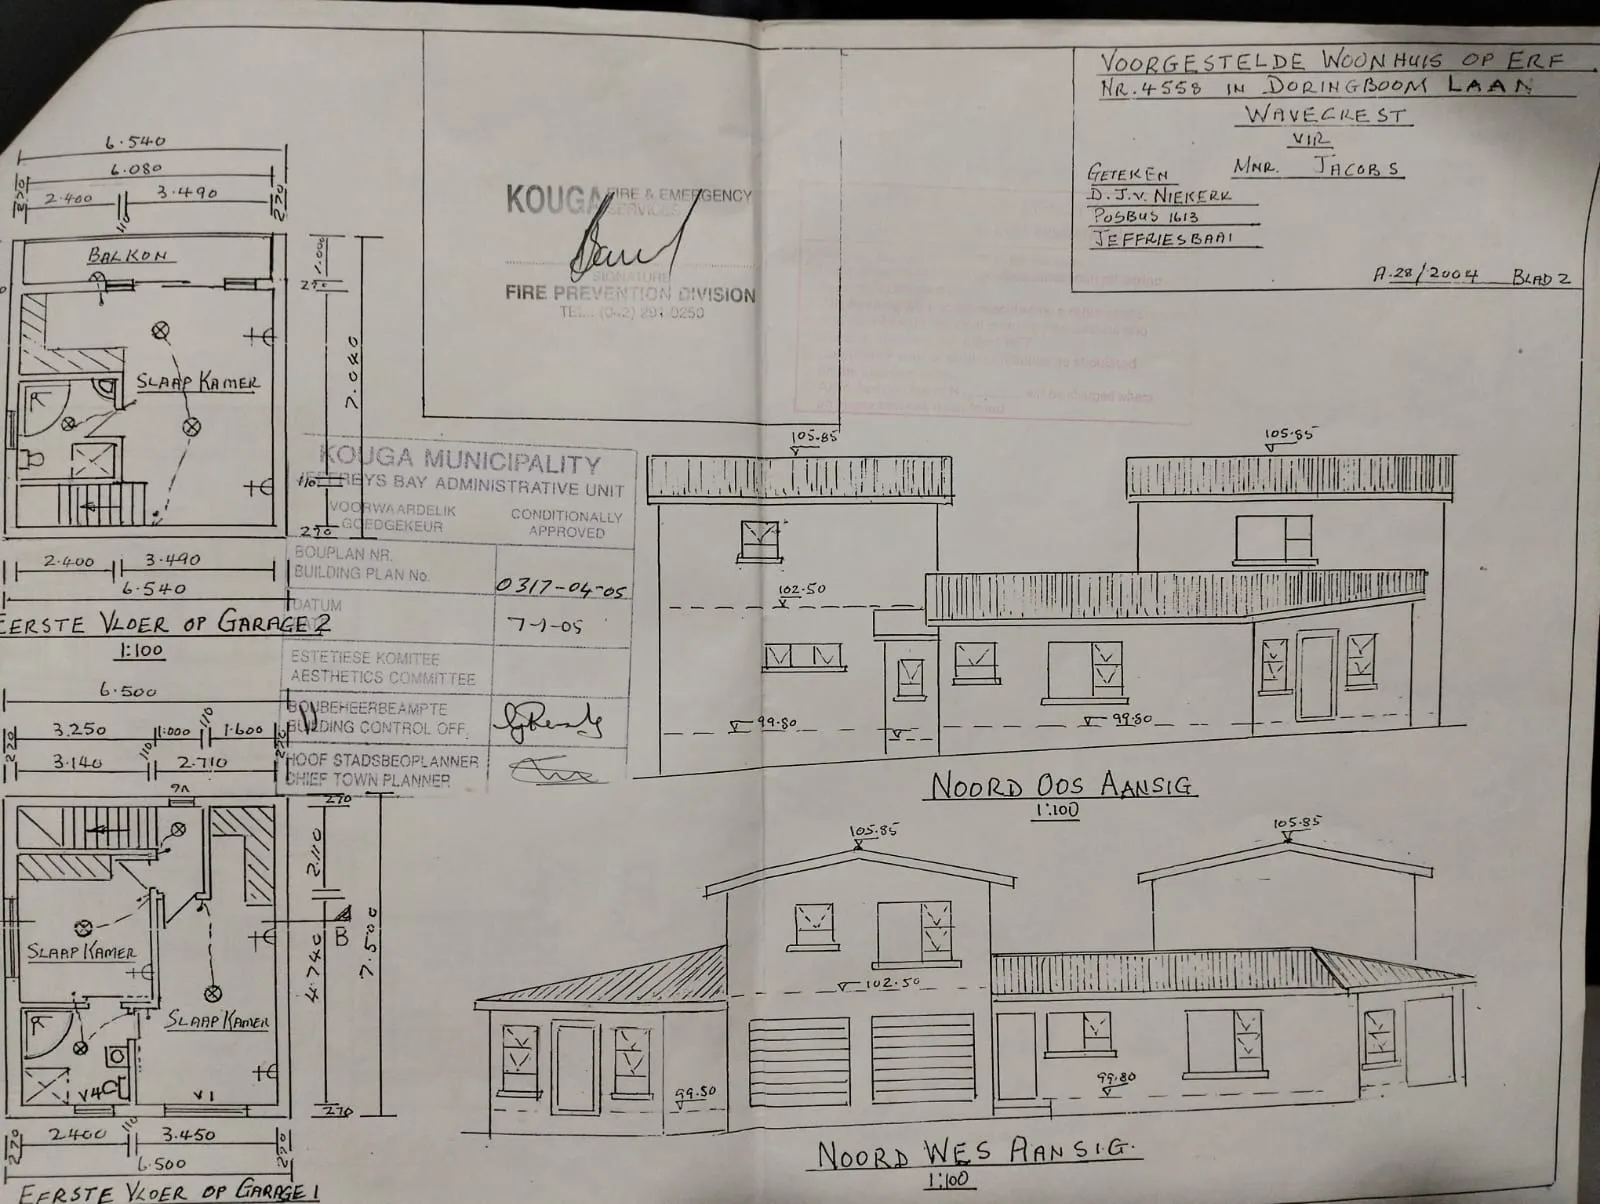 VOORGESTELDE WOONHUIS OP ERF
NR. 4558 IN DORINGBOOM LAAN
WAVECREST
VIR
MNR. JACOBS
GETEKEN
D.J.V. NIEKERK
POSBUS 1613
JEFFRIESBAAI
A.28/2004 BLAD 2
KOUGA FIRE & EMERGENCY
SERVICES
SIGNATURE
FIRE PREVENTION DIVISION
TEL.: (042) 291 0250
6.540
6.080
2.400
3.490
270
110
270
BALKON
1.000
270
SLAAP KAMER
7.040
110
270
2.400
3.490
6.540
EERSTE VLOER OP GARAGE 2
1:100
KOUGA MUNICIPALITY
JEFFREYS BAY ADMINISTRATIVE UNIT
VOORWAARDELIK
GOEDGEKEUR
CONDITIONALLY
APPROVED
BOUPLAN NR.
BUILDING PLAN No.
0317-04-05
DATUM
7-1-05
ESTETIESE KOMITEE
AESTHETICS COMMITTEE
BOUBEHEERBEAMPTE
BUILDING CONTROL OFF.
HOOF STADSBEOPLANNER
CHIEF TOWN PLANNER
6.500
3.250
1.000
110
1.600
270
3.140
110
2.710
270
270
2.110
4.740
7.500
B
SLAAP KAMER
SLAAP KAMER
V4
V1
270
270
2400
110
3.450
270
6.500
EERSTE VLOER OP GARAGE 1
105.85
105.85
102.50
99.80
99.80
NOORD OOS AANSIG
1:100
105.85
105.85
102.50
99.50
99.80
NOORD WES AANSIG.
1:100